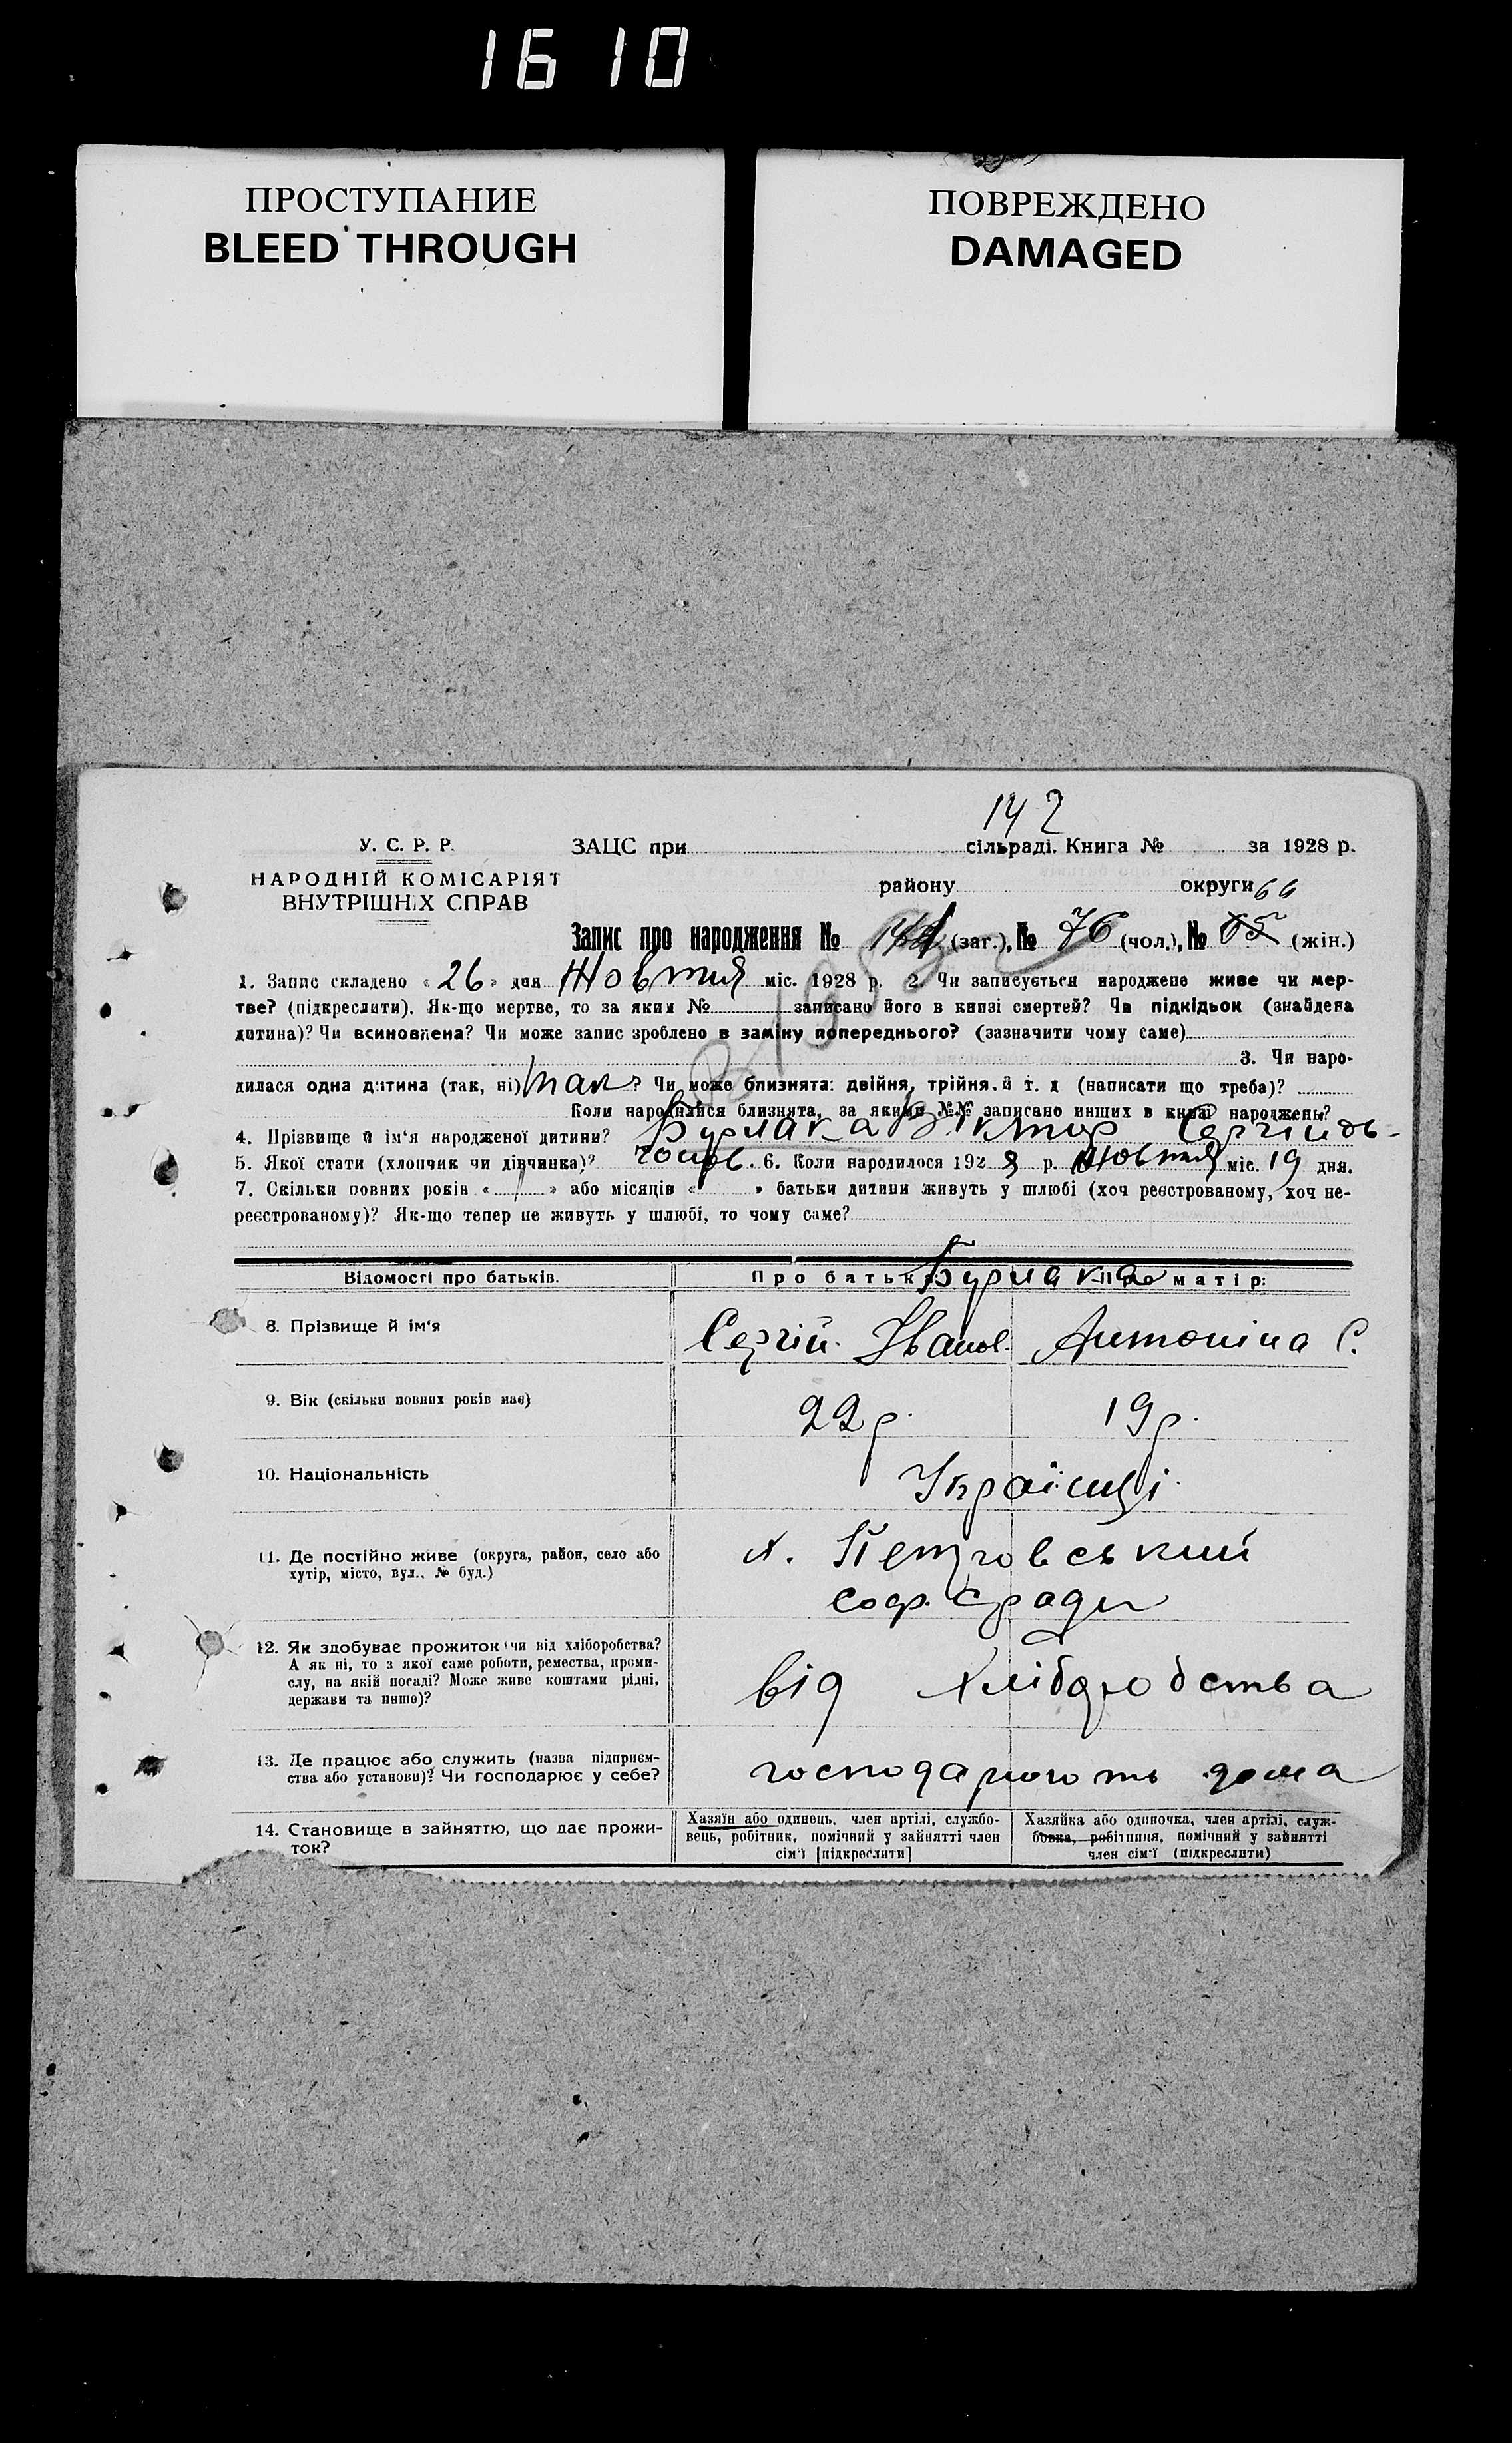 16 10
ПРОСТУПАНИЕ
BLEED THROUGH
ПОВРЕЖДЕНО
DAMAGED
142
У. С. Р. Р.
НАРОДНІЙ КОМІСАРІЯТ
ВНУТРІШНІХ СПРАВ
ЗАЦС при сільраді. Книга № за 1928 р.
району округи 66
Запис про народження № (заг.), № 76 (чол.), № 65 (жін.)
1. Запис складено «26» дня Жовтня міс. 1928 р. 2. Чи записується народжене живе чи мер-
тве? (підкреслити). Як-що мертве, то за яким № записано його в книзі смертей? Чи підкідьок (знайдена
дитина)? Чи всиновлена? Чи може запис зроблено в заміну попереднього? (зазначити чому саме)
3. Чи наро-
дилася одна дитина (так, ні) так? Чи може близнята: двійня, трійня, й т. д (написати що треба)?
Коли народилися близнята, за якими №№ записано инших в книзі народжень?
4. Прізвище й ім'я народженої дитини? Бурлака Віктор Сергійов-
5. Якої стати (хлопчик чи дівчинка)? чолов. 6. Коли народилося 1928 р. Жовтня міс. 19 дня.
7. Скільки повних років «1» або місяців « » батьки дитини живуть у шлюбі (хоч реєстрованому, хоч не-
реєстрованому)? Як-що тепер не живуть у шлюбі, то чому саме?
Відомості про батьків. Про батька: Про матір:
Бурлака
8. Прізвище й ім'я Сергій Іванов. Антоніна С.
9. Вік (скільки повних років має) 22 р. 19 р.
10. Національність Українці
11. Де постійно живе (округа, район, село або
хутір, місто, вул., № буд.)
х. Петровський
соф. сради
12. Як здобуває прожиток чи від хліборобства?
А як ні, то з якої саме роботи, ремества, проми-
слу, на якій посаді? Може живе коштами рідні,
держави та инше)?
від хліборобства
13. Де працює або служить (назва підприєм-
ства або установи)? Чи господарює у себе?
господарюють дома
14. Становище в зайняттю, що дає прожи-
ток?
Хазяїн або одинець, член артілі, службо-
вець, робітник, помічний у зайнятті член
сім'ї [підкреслити]
Хазяйка або одиночка, член артілі, служ-
бовка, робітниця, помічний у зайнятті
член сім'ї (підкреслити)